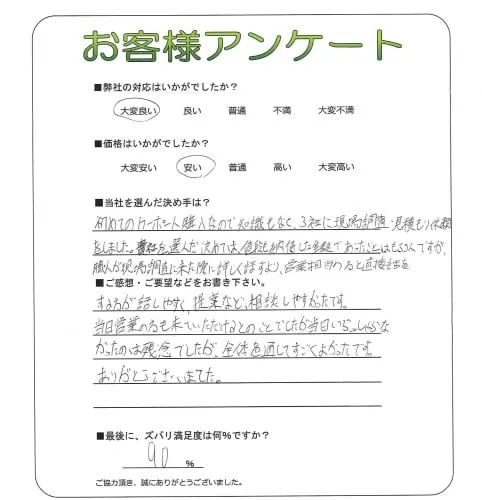 お客様アンケート
■弊社の対応はいかがでしたか？
大変良い 良い 普通 不満 大変不満
■価格はいかがでしたか？
大変安い 安い 普通 高い 大変高い
■当社を選んだ決め手は？
初めてのカーポート購入なので知識もなく、3社に現場調査・見積もり依頼
をしました。選んだ決めては、価格も納得した金額であったことはもちろんですが、
職人が現場調査に来た際に詳しく話すより、営業担当の方と直接話を
■ご感想・ご要望などをお書き下さい。
する方が話しやすく、提案など、相談しやすかったです。
当日営業の方も来ていただけるとのことでしたが当日いらっしゃらな
かったのは残念でしたが、全体を通してすごくよかったです。
ありがとうございました。
■最後に、ズバリ満足度は何％ですか？
90 %
ご協力頂き、誠にありがとうございました。